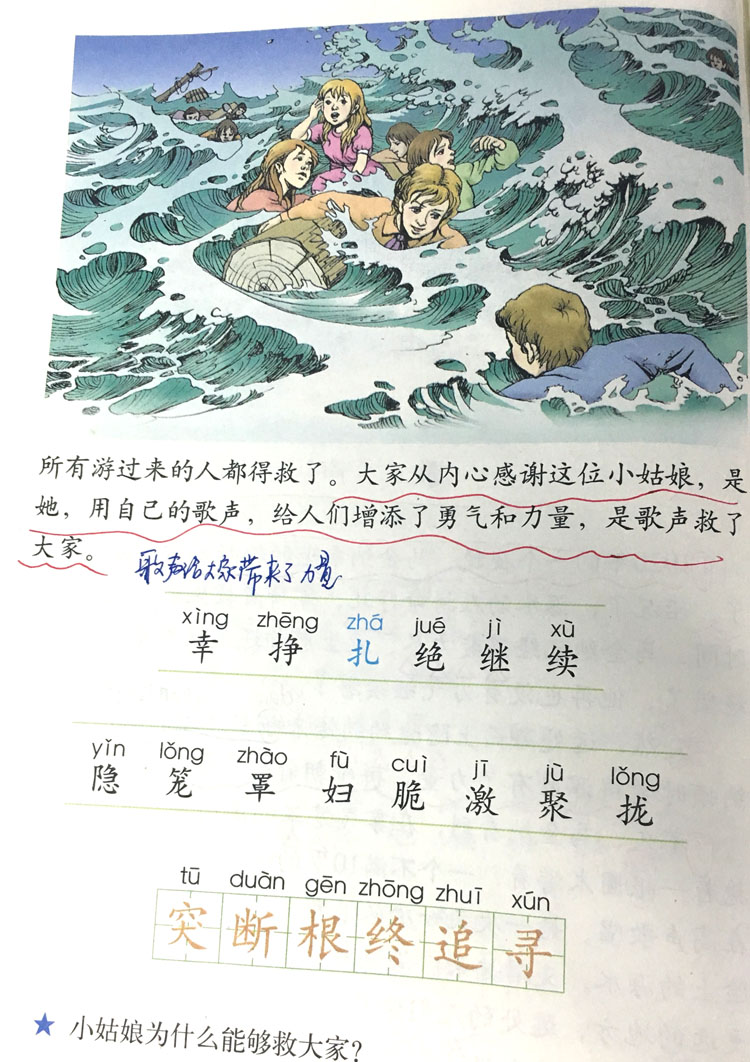 所有游过来的人都得救了。大家从内心感谢这位小姑娘，是
她，用自己的歌声，给人们增添了勇气和力量，是歌声救了
大家。
歌声给大家带来了力量
xìng zhēng zhá jué jì xù
幸 挣 扎 绝 继 续
yǐn lǒng zhào fù cuì jī jù lǒng
隐 笼 罩 妇 脆 激 聚 拢
tū duàn gēn zhōng zhuī xún
突 断 根 终 追 寻
★ 小姑娘为什么能够救大家？